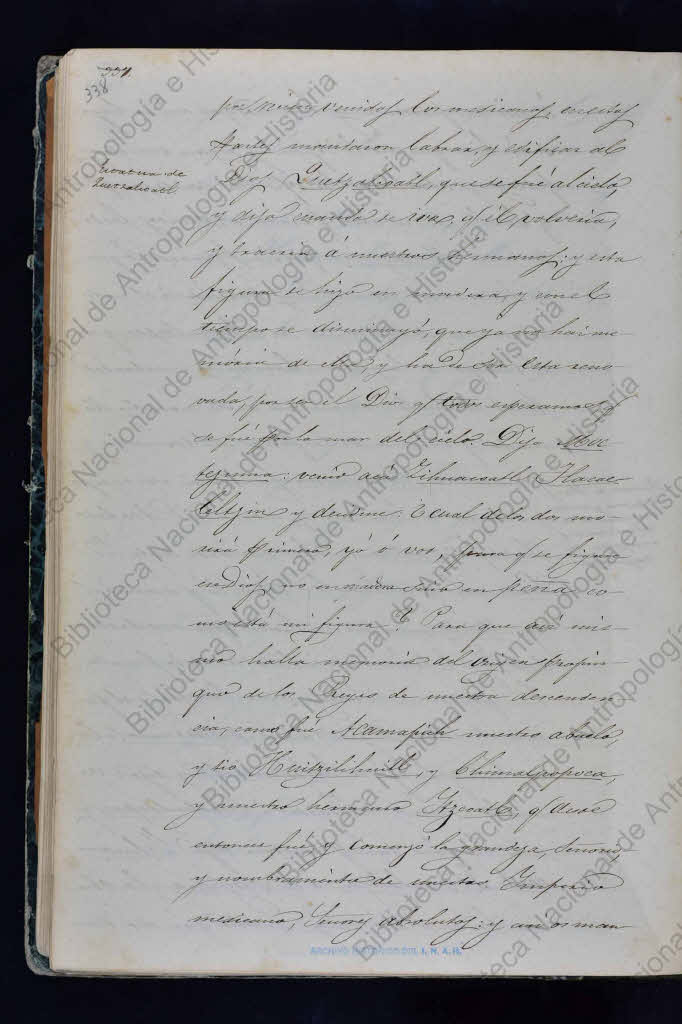 337.
338
Escatura de
Quetzalcoatl
por, nuevam venidos los mexicanos, en estas
partes mandaron labrar, y edificar al
Dios Quetzalcoatl, que se fué al cielo,
y dijo cuando se iva, q.e él volveria,
y traeria á nuestros hermanos: y esta
figura se hizo en madera, y con el
tiempo se disminuyó, que ya no hai me-
moria de ella; y ha de ser esta reno-
vada, por ser el Dios q.e todos esperamos q.e
se fué por la mar del cielo. Dijo Moc-
tezuma: venid acá Zihuacoatl Tlacae-
leltzin y decidme. ¿cual de los dos mo-
rirá primero, yó ó vos, para q.e se figure
en Dios, no en madera sino en peña co-
mo está mi figura? Para que asi mis-
mo halla memoria del origen propin-
quo de los Reyes de nuestra descenden-
cia, como fué Acamapich nuestro abuelo,
y tio Huitzilihuitl, y Chimalpopoca,
y nuestro hermano Itzcoatl, q.e desde
entonces fué y comenzó la grandeza, Señorio,
y nombramiento de nuestro Imperio
mexicano, Señores absolutos: y asi os man-
ARCHIVO HISTORICO DEL I. N. A. H.
Biblioteca Nacional de Antropología e Historia